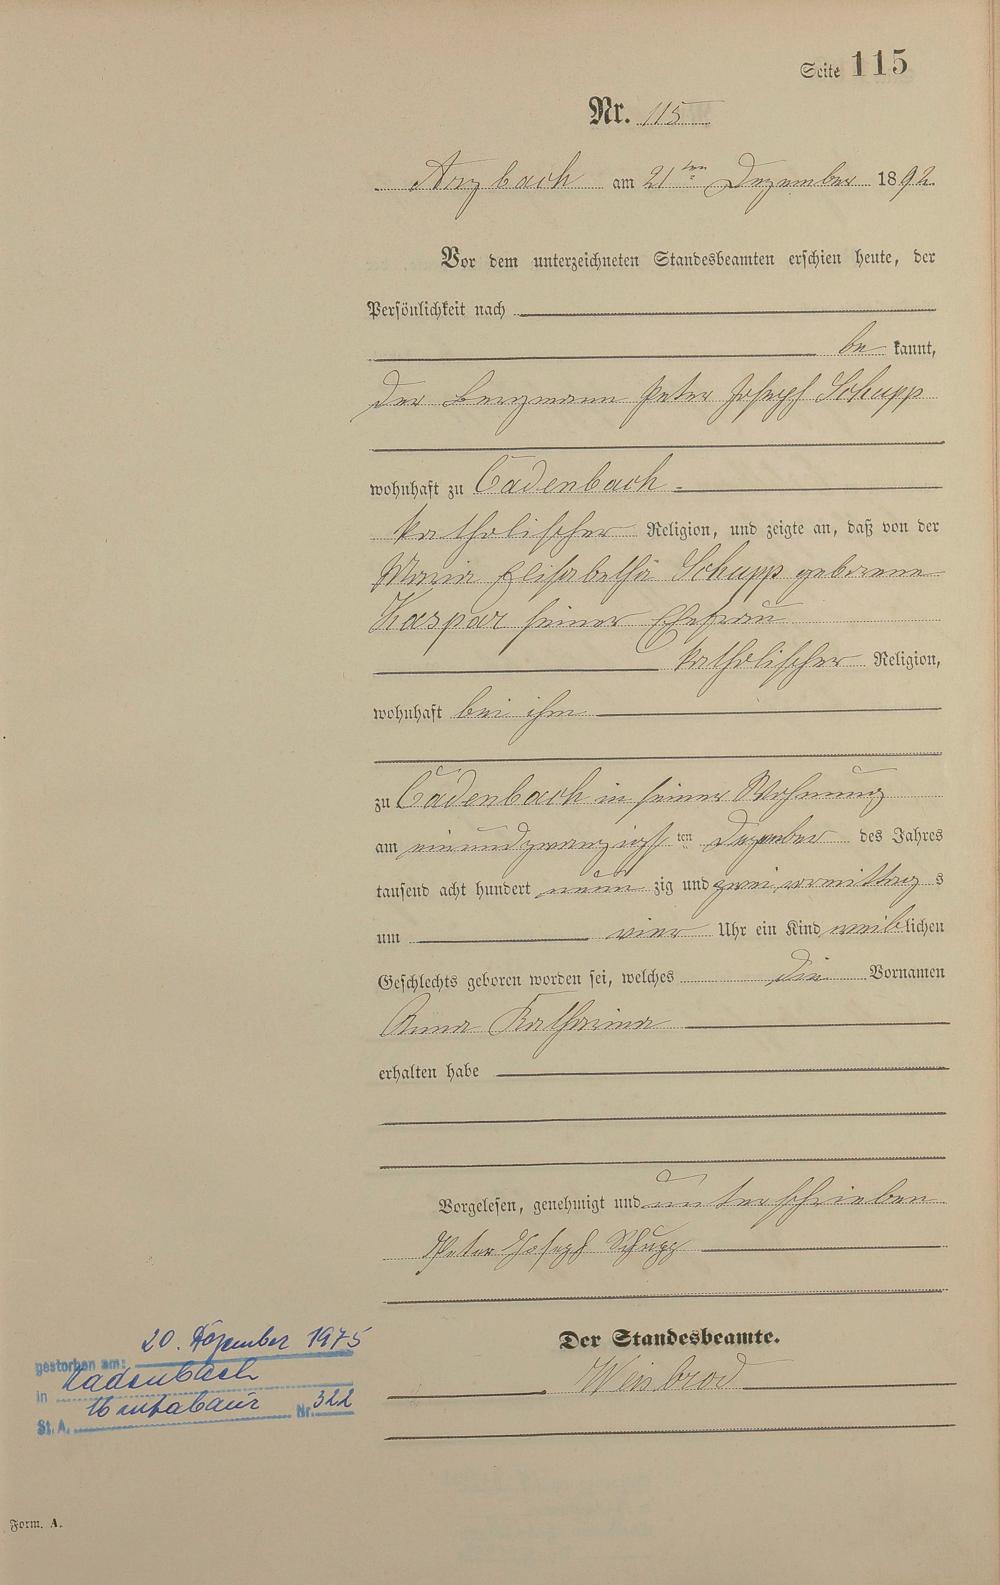 Seite 115
Nr. 115
Arzbach am 21ten Dezember 1892.
Vor dem unterzeichneten Standesbeamten erschien heute, der
Persönlichkeit nach
be kannt,
der Bergmann Peter Joseph Schupp
wohnhaft zu Cadenbach
katholischer Religion, und zeigte an, daß von der
Maria Elisabetha Schupp geborene
Kaspar seiner Ehefrau
katholischer Religion,
wohnhaft bei ihm
zu Cadenbach in seiner Wohnung
am einundzwanzigsten Dezember des Jahres
tausend acht hundert neunzig und zwei vormittags
um vier Uhr ein Kind weiblichen
Geschlechts geboren worden sei, welches die Vornamen
Anna Katharina
erhalten habe
Vorgelesen, genehmigt und unterschrieben
Peter Joseph Schupp
Der Standesbeamte.
Weinbrod
gestorben am: 20. Dezember 1975
in Kadenbach
St. A. Montabaur Nr. 322
Form. A.